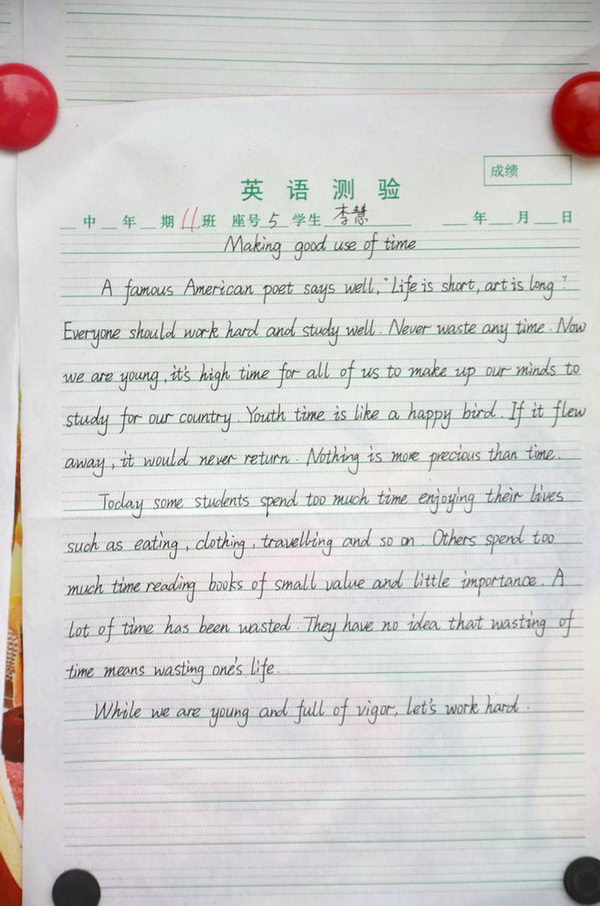 成绩
英语测验
中 年 期 11 班 座号 5 学生 李慧 年 月 日
Making good use of time
A famous American poet says well, "Life is short, art is long".
Everyone should work hard and study well. Never waste any time. Now
we are young, it's high time for all of us to make up our minds to
study for our country. Youth time is like a happy bird. If it flew
away, it would never return. Nothing is more precious than time.
Today some students spend too much time enjoying their lives
such as eating, clothing, travelling and so on. Others spend too
much time reading books of small value and little importance. A
lot of time has been wasted. They have no idea that wasting of
time means wasting one's life.
While we are young and full of vigor, let's work hard.